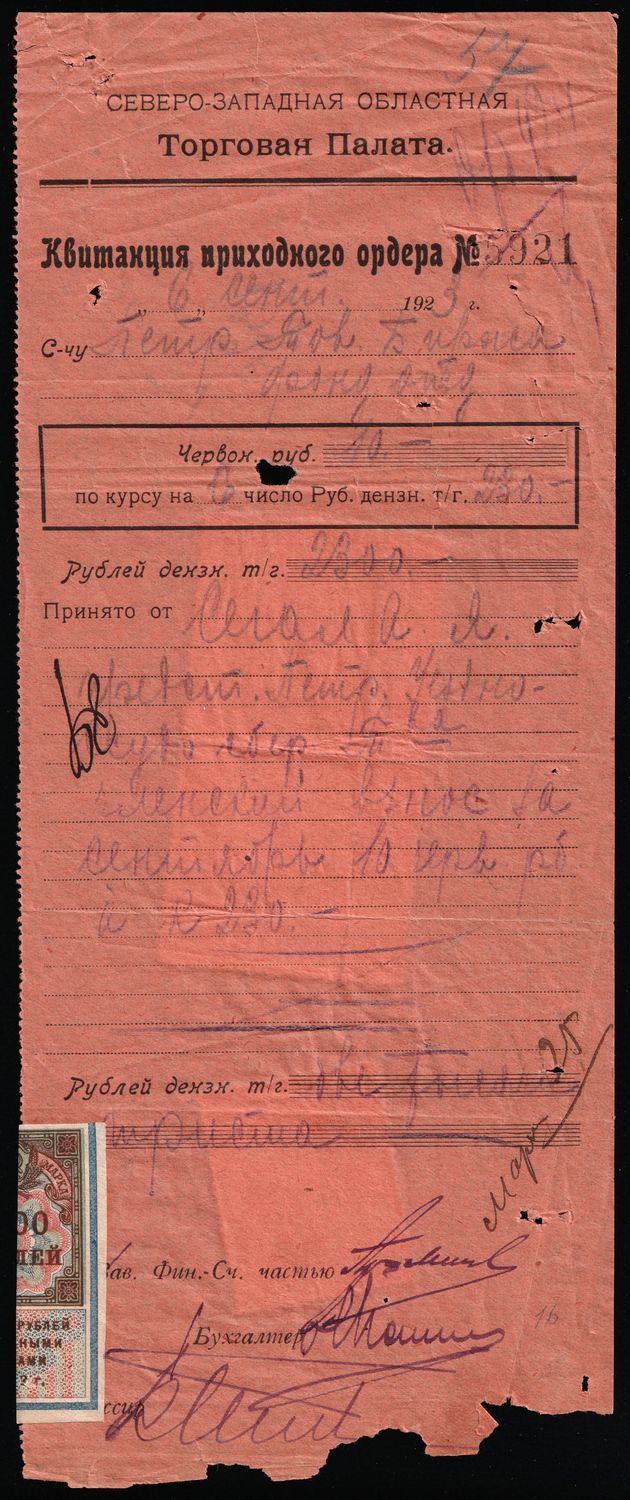 57
СЕВЕРО-ЗАПАДНАЯ ОБЛАСТНАЯ
Торговая Палата.
Квитанция приходного ордера № 5921
„ 6 „ сент. 1923 г.
С-чу Петр. Тов. Биржа
фонд отд
Червон. руб. 10.—
по курсу на 6 число Руб. дензн. т/г. 230.—
Рублей дензн. т/г. 2300.—
Принято от Сегал А. Я.
Петр.
членский взнос за
сентябрь 10 черв. рб
à R 230.—
Рублей дензн. т/г. две тысячи
триста
МАРКА
00
ЛЕЙ
РУБЛЕЙ
НЫМИ
АМИ
2 г.
Зав. Фин.-Сч. частью
Бухгалтер
ссир